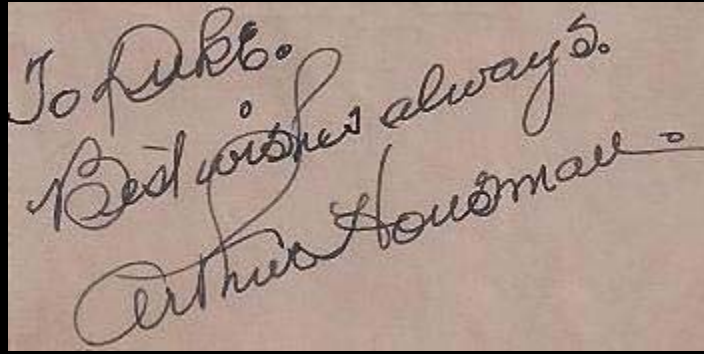 To Duke.
Best wishes always.
Arthur Housman.